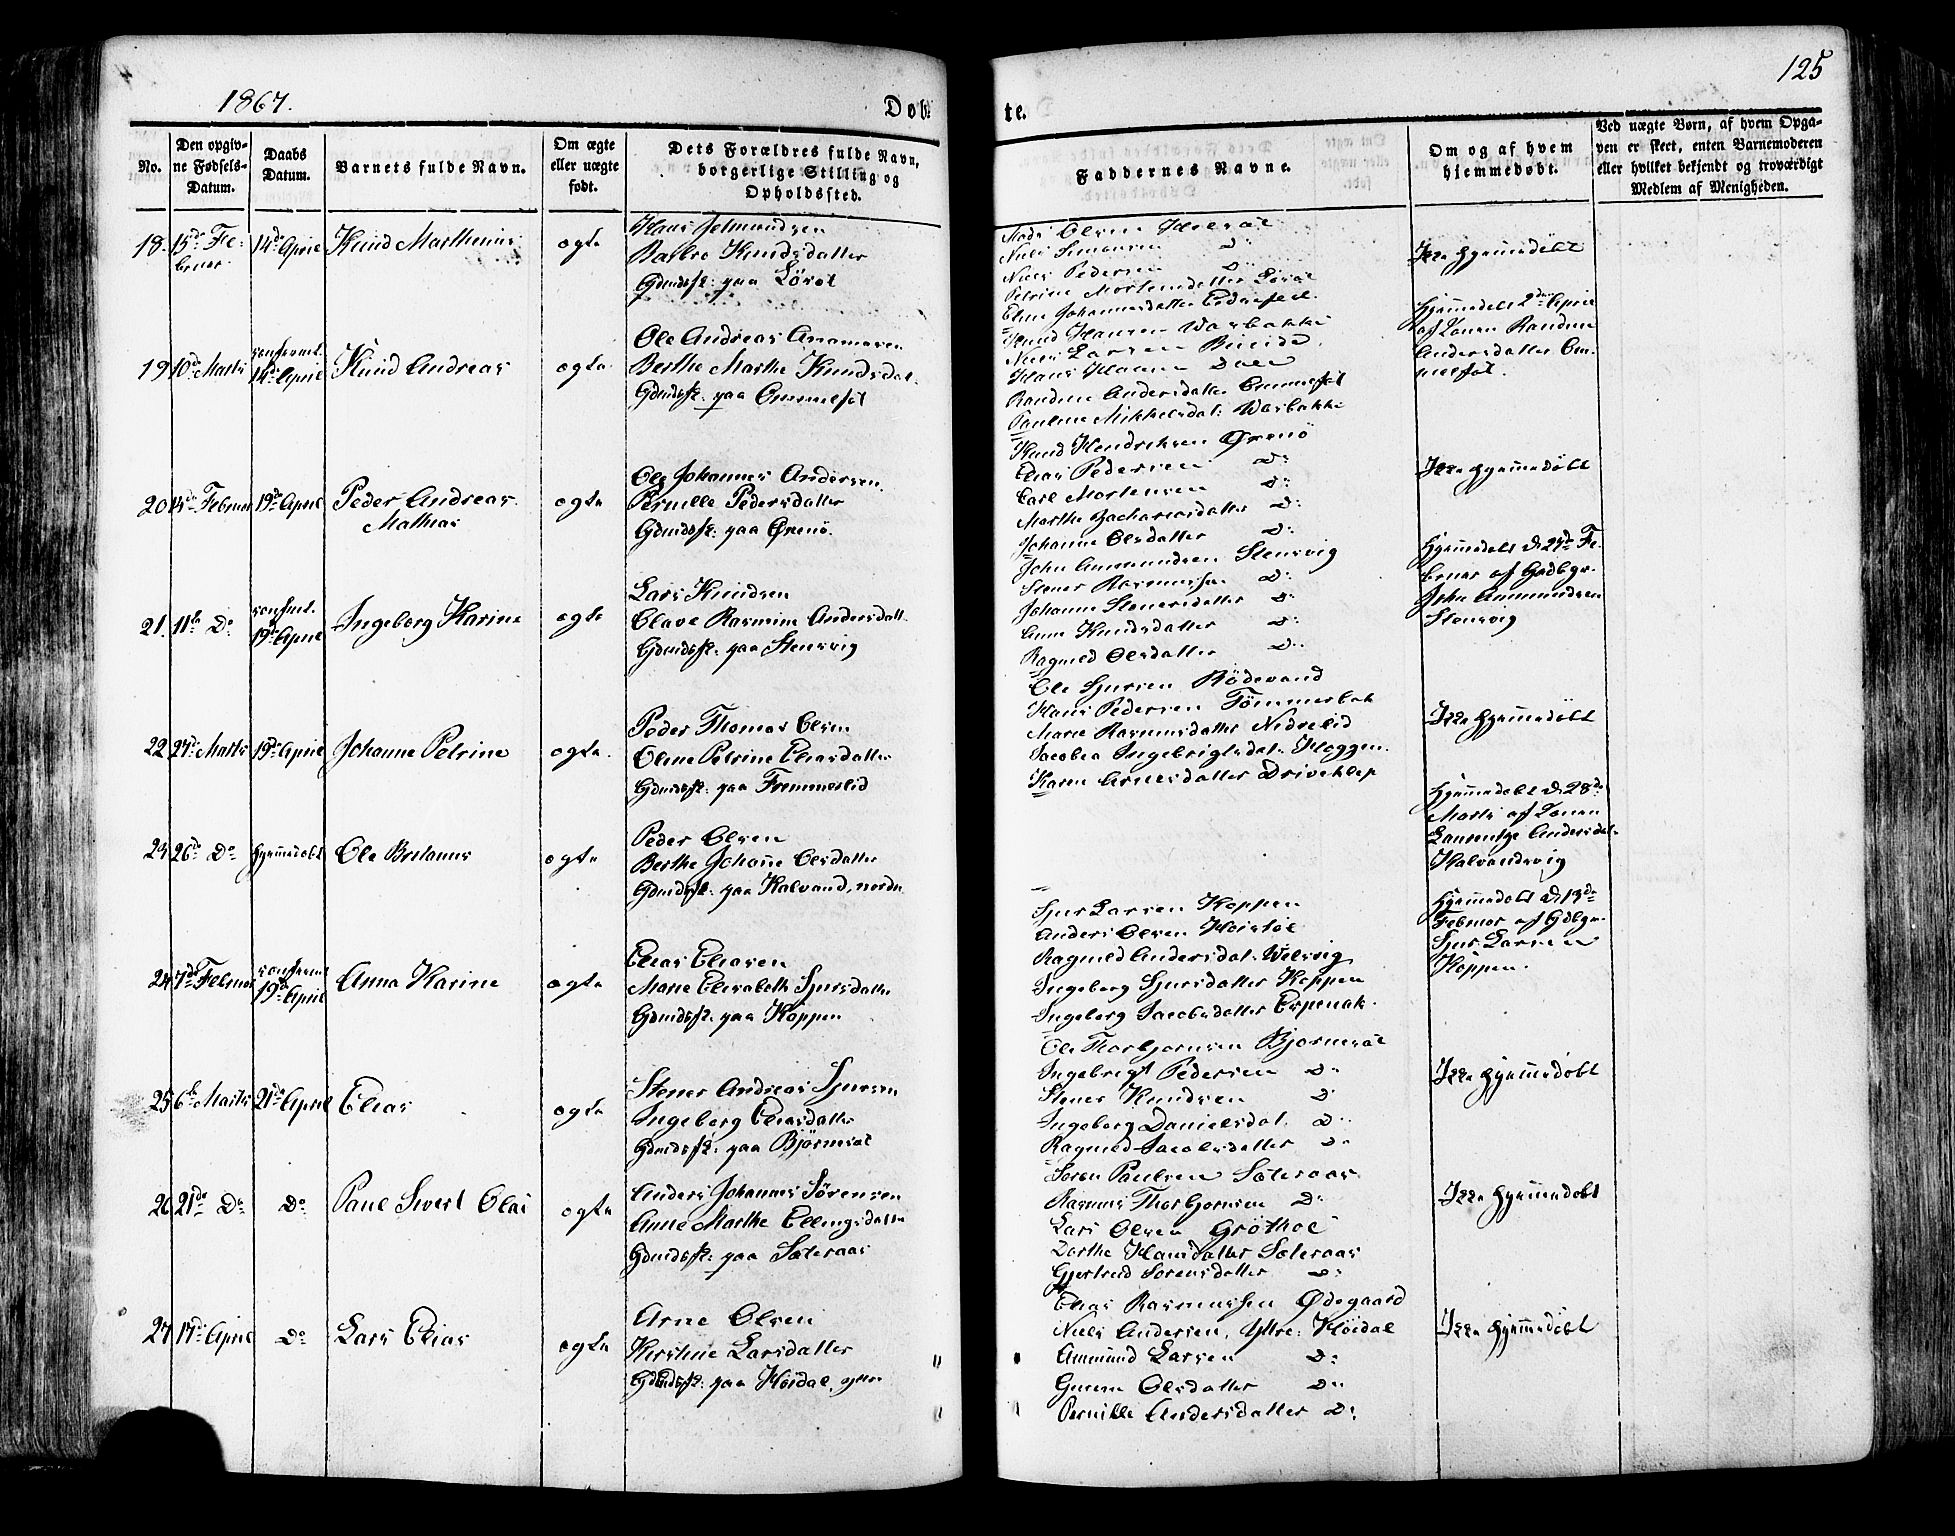 1867.
Døb
te.
125
No.
Den opgiv-
ne Fødsels-
Datum.
Daabs
Datum.
Barnets fulde Navn.
Om ægte
eller uægte
født.
Dets Forældres fulde Navn,
borgerlige Stilling og
Opholdssted.
Faddernes Navne.
Om og af hvem
hjemmedøbt.
Ved uægte Børn, af hvem Opga-
ven er skeet, enten Barnemoderen
eller hvilket bekjendt og troværdigt
Medlem af Menigheden.
18. 15de Fe-
bruar. 14de April Knud Marthinus ægte
Hans
Barbro Knudsdatter
Gdmdsfk: paa
Mads Olsen
Niels Simonsen D:
Niels Pedersen D:
Petrine Mortensdatter
Eline Johannesdatter
Ikke hjemmedøbt
19 10de Marts confirmt.
14de April Knud Andreas ægte
Ole Andreas
Berthe Marthe Knudsdat.
Gdmdsfk: paa
Knud Hansen Varbakke
Niels Larsen
Hans Hansen
Randine Andersdatter
Pauline Mikkelsdat: Varbakke
Hjemmedøbt 2den April
af Konen Randine
Andersdatter
20 Februar 19de April Peder Andreas
Mathias ægte
Ole Johannes Andersen
Pernille Pedersdatter
Gdmdsfk: paa Ørenø
Knud Hendriksen Ørenø
Elias Pedersen D:
Carl Mortensen D:
Marthe Zachariasdatter D:
Johanne Olsdatter D:
Ikke hjemmedøbt
21. 11te Do confirmt.
19de April Ingeborg Karine ægte
Lars Knudsen
Olave Rasmine Andersdatt.
Gdmdsfk: paa Stensvig
John Ammundsen Stensvig
Stener Rasmussen D:
Johanne Stenersdatter D:
Anne Knudsdatter D:
Ragnild Olsdatter D:
Hjemmedøbt d. 27de Fe-
bruar af Gaardbgr.
John Ammundsen
Stensvig
22 27de Marts 19de April Johanne Petrine ægte
Peder Thomas Olsen
Oline Petrine Eliasdatter
Gdmdsfk: paa
Ole Sjursen Rødevand
Hans Pedersen Tømmerbak
Marie Rasmusdatter Nidrelid
Jacobea Ingebrigtsdat: Haggen
Karen Arnesdatter Driveklep
Ikke hjemmedøbt
23 26de Do hjemmedøbt Ole ægte
Peder Olsen
Berthe Johanne Olsdatter
Gdmdsfk: paa Halvand, nordre
Hjemmedøbt d. 28de
Marts af Konen
Andersdat.
24 7de Februar confirmt
19de April Anna Karine ægte
Elias Eliasen
Marie Elisabeth Sjursdatter
Gdmdsfk: paa Hoppen
Sjur Larsen Hoppen
Anders Olsen
Ragnild Andersdat:
Ingeborg Sjursdatter Hoppen
Ingeborg Jacobsdatter Espenak.
Hjemmedøbt d. 13de
Februar af Gdbgr.
Sjur Larsen
Hoppen.
25 6te Marts 21de April Elias ægte
Stener Andreas Sjursen
Ingeborg Eliasdatter
Gdmdsfk: paa Bjørnesæt
Ole Thorbjørnsen Bjørnesæt
Ingebrigt Pedersen D:
Stener Knudsen D:
Ingeborg Danielsdat. D:
Ragnild Jacobsdatter D:
Ikke hjemmedøbt
26 21de Do Do Paul Sivert Olai ægte
Anders Johannes Sørensen
Anne Marthe Ellingsdatter
Gdmdsfk: paa Sæteraas
Søren Paulsen Sæteraas
Rasmus Thorbjørnsen D:
Lars Olsen
Dorthe Hansdatter Sæteraas
Gjertrud Sørensdatter D:
Ikke hjemmedøbt
27 17de April Do Lars Elias ægte
Arne Olsen
Kirstine Larsdatter
Gdmdsfk: paa Høidal, yttre
Elias Rasmussen Ødegaard
Niels Andersen, Yttre: Høidal
Ammund Larsen D:
Olsdatter D:
Pernille Andersdatter D:
Ikke hjemmedøbt